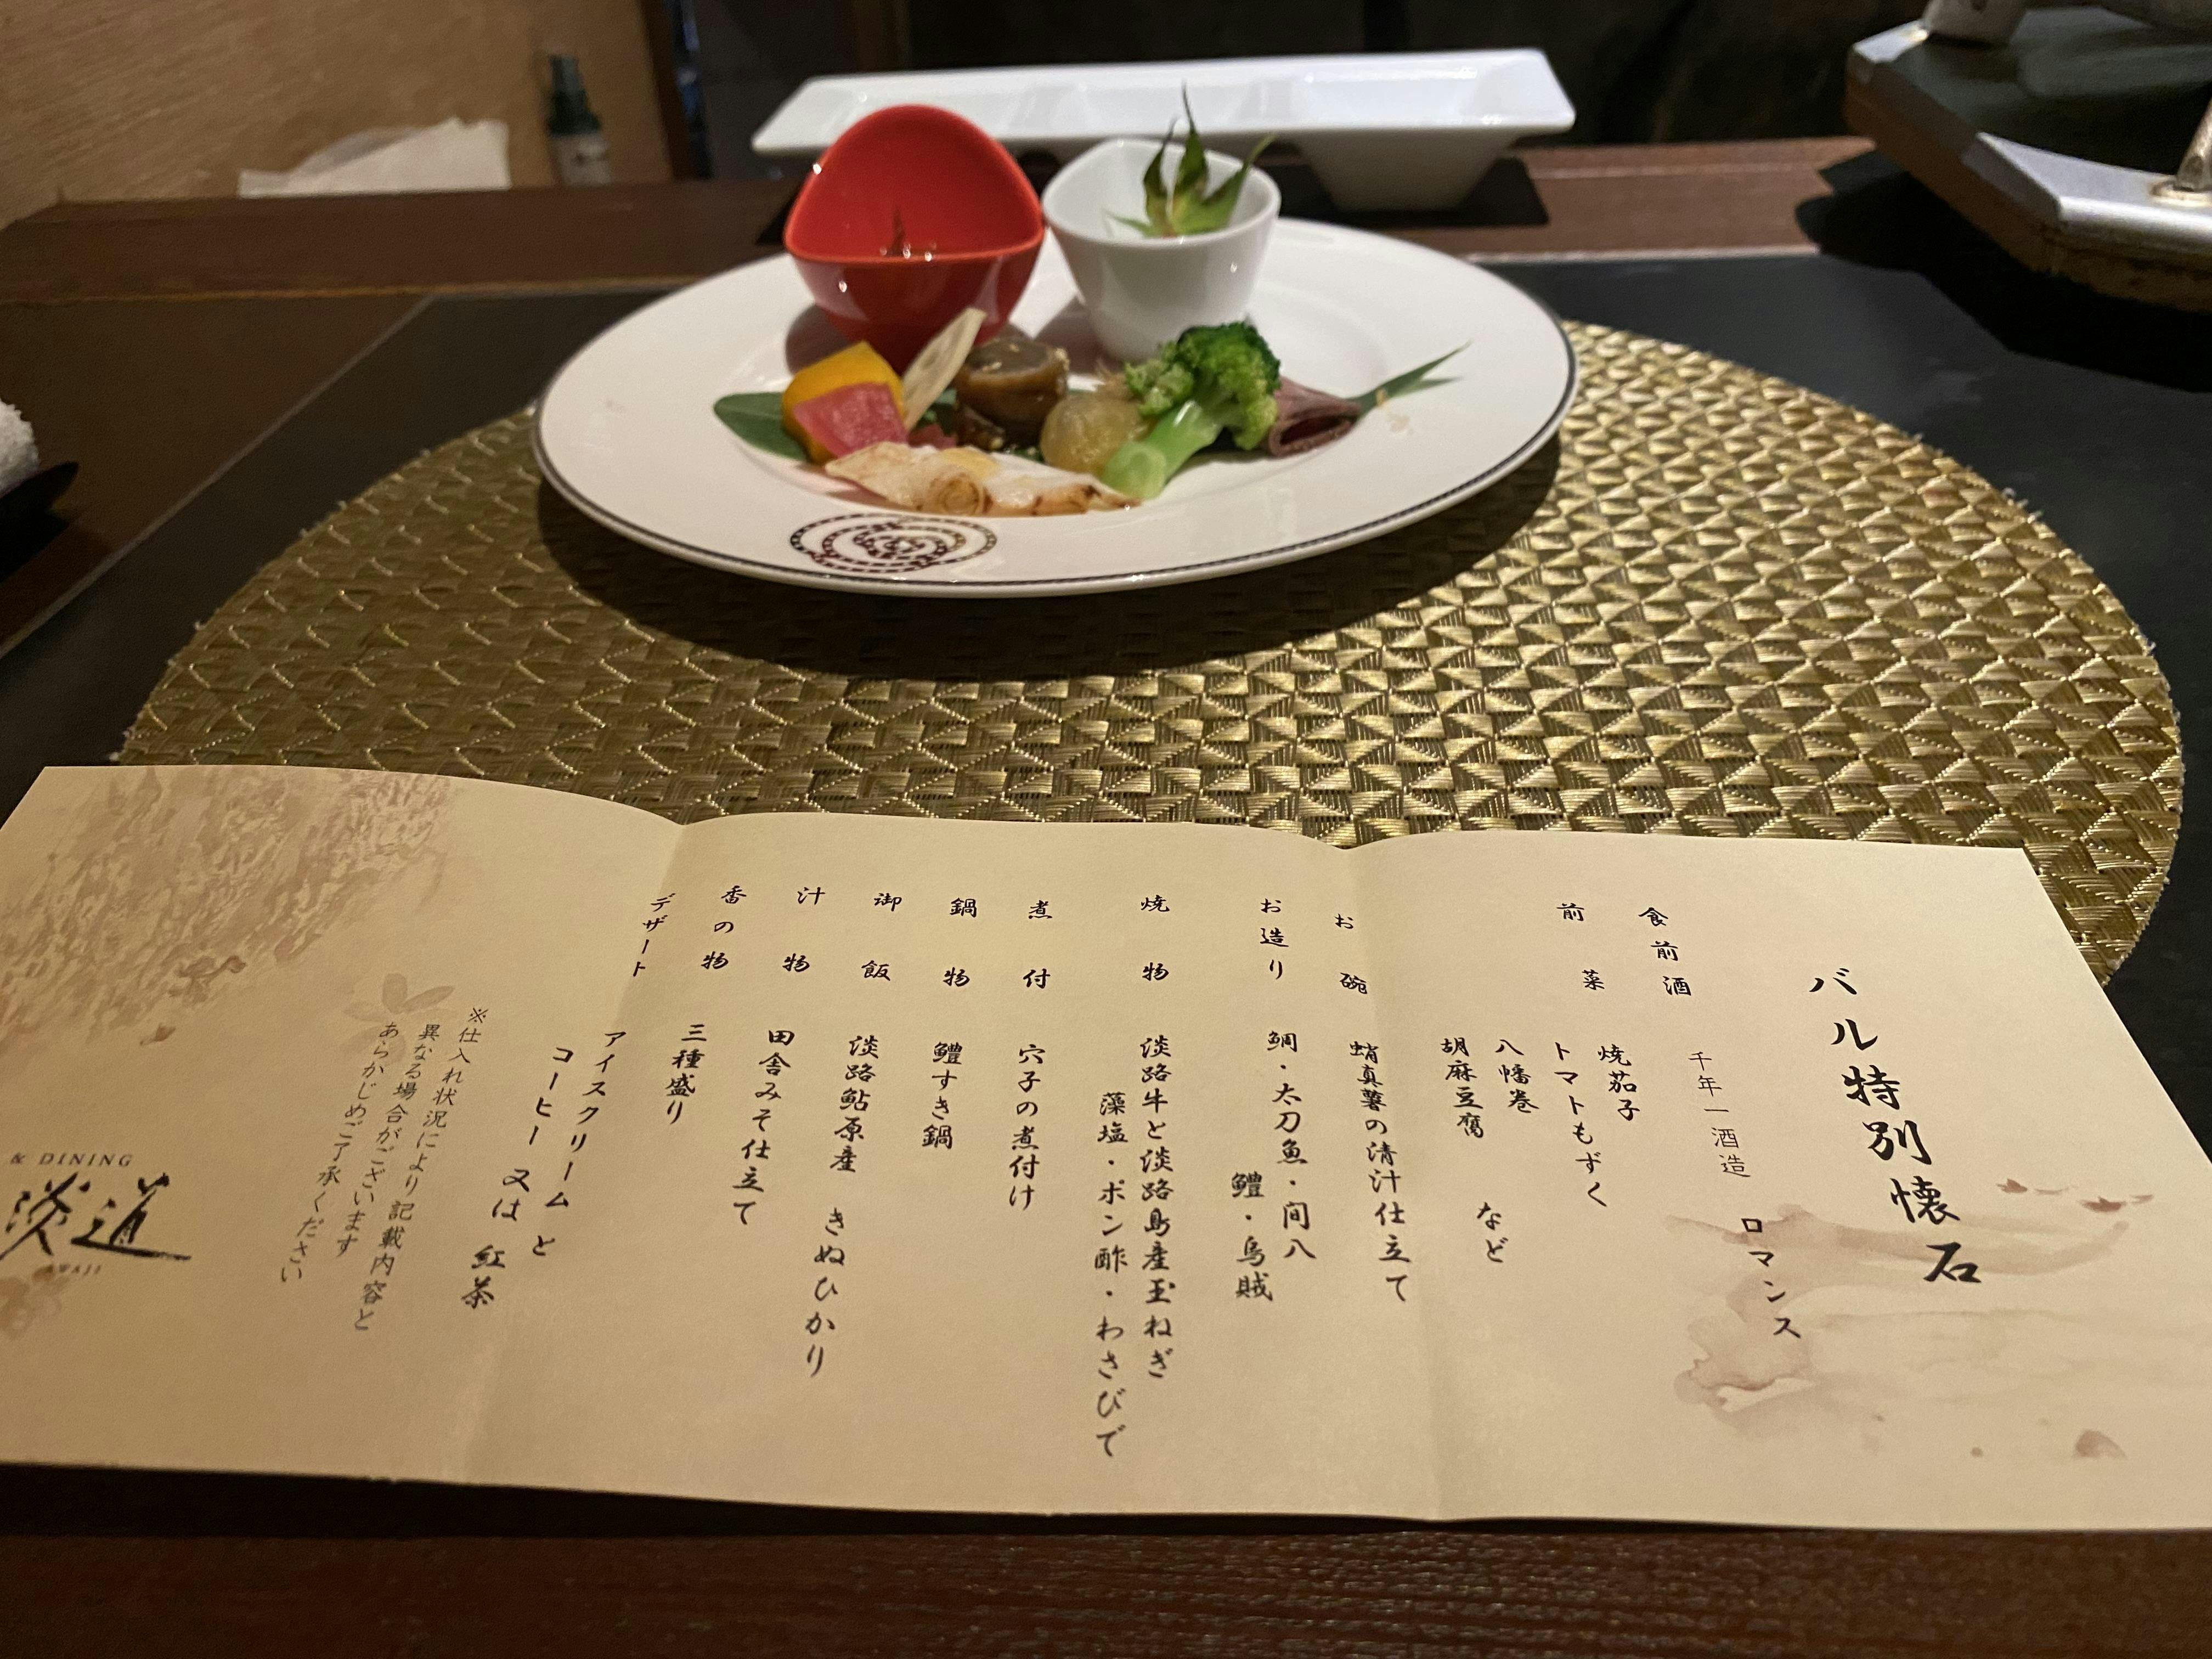 バル特別懐石
食前酒 千年一酒造 ロマンス
前菜 焼茄子
トマトもずく
八幡巻 など
胡麻豆腐
お碗 蛸真薯の清汁仕立て
お造り 鯛・太刀魚・間八
鱧・烏賊
焼物 淡路牛と淡路島産玉ねぎ
藻塩・ポン酢・わさびで
煮付 穴子の煮付け
鍋物 鱧すき鍋
御飯 淡路鮎原産 きぬひかり
汁物 田舎みそ仕立て
香の物 三種盛り
デザート アイスクリームと
コーヒー 又は 紅茶
※仕入れ状況により記載内容と
異なる場合がございます
あらかじめご了承ください
& DINING
淡道
AWAJI